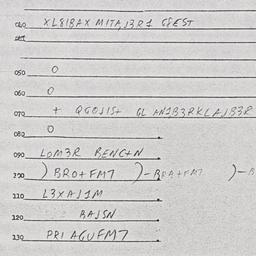 040 XL8IBAX MITAJ3R1 G8EST
050 O
060 O
070 + QGOJIS+ GL AN2B3RKLAJB3R
080 O
090 LOM3R BENG+N
100 ) BRO+FM7 )-BRA+FM7 )-B
110 L3XAJ1M
120 BAJSN
130 PRI AGUFM7